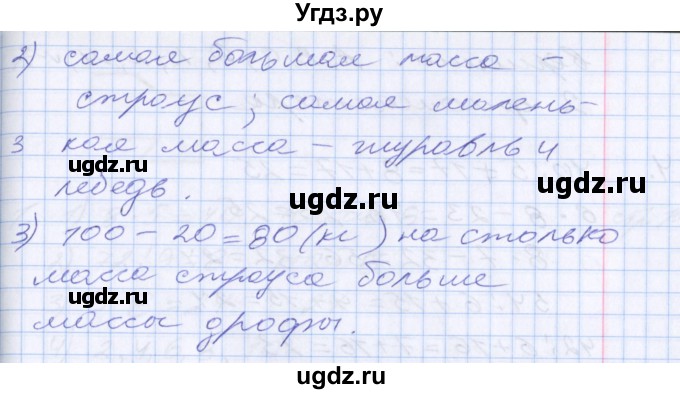 Угдз.ру
2) самая большая масса -
страус; самая малень-
3 кая масса - журавль и
лебедь.
3) 100 - 20 = 80 (кг) на столько
масса страуса больше
массы дрофы.
ugdz.ru
ugdz.ru
ugdz.ru
ugdz.ru
ugdz.ru
ugdz.ru
ugdz.ru
ugdz.ru